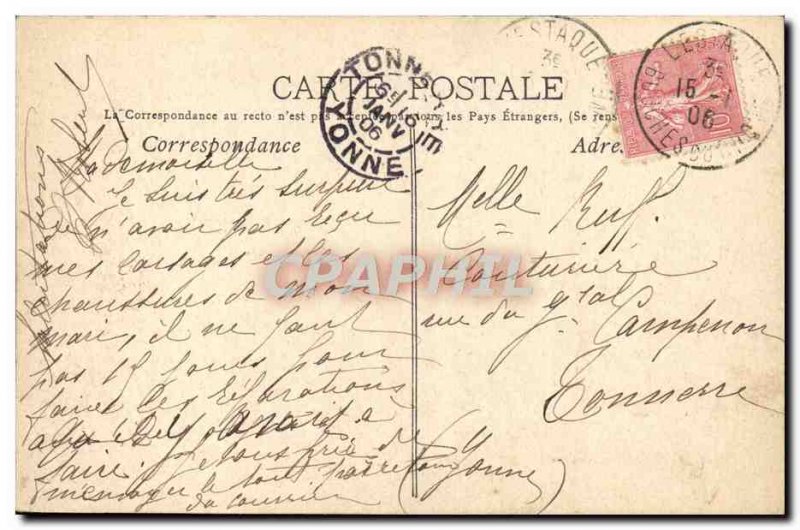 CARTE POSTALE
La Correspondance au recto n'est pas acceptée par tous les Pays Étrangers, (Se rens
Correspondance
Adres
L'ESTAQUE
3E
15 -1
06
BOUCHES DU RH
TONNERRE
6E 16
JANV
06
YONNE
10
Mademoiselle
Je suis très surprise
de n'avoir pas reçu
mes corsages et les
chaussures de mon
mari, il ne faut
pas 15 jours pour
faire les réparations
à
faire. Je vous prie de
m'envoyer le tout par retour
du courrier
Salutations
Melle Ruf.
Couturière
rue du Gal Campenon
Tonnerre
(Yonne)
CPAPHIL